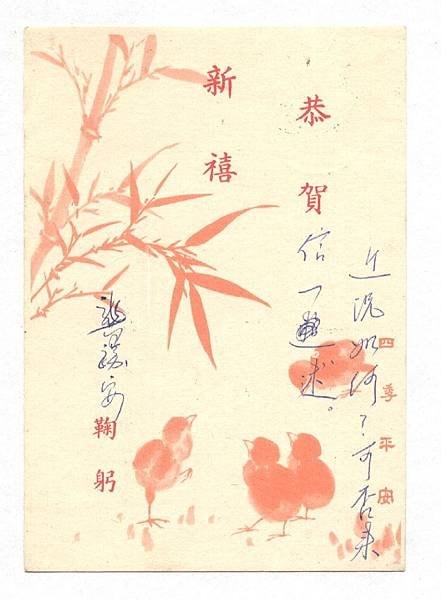 恭賀
新禧
四季平安
近況如何？可否來
信一述。
安
鞠躬